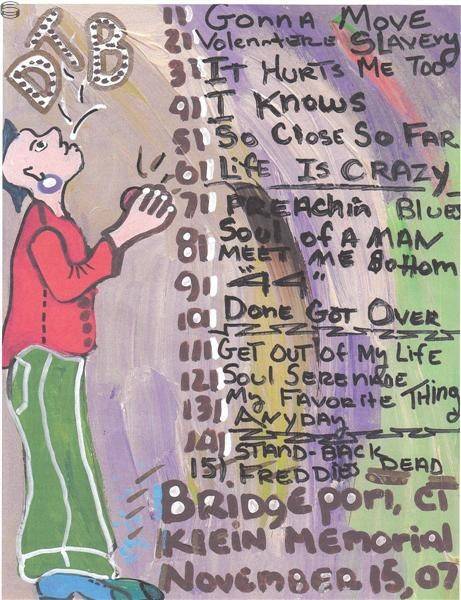 DTB
1) GONNA MOVE
2) VolenntERE SLAVERY
3) IT HURTS ME TOO
4) I KNOWS
5) SO CLOSE SO FAR
6) LIFE IS CRAZY
7) PREACHin BLUES
8) Soul of A MAN
MEET ME Bottom
9) "44"
10) DONE GOT OVER
11) GET OUT of My LIFE
12) SOUL SERENADE
13) My FAVORITE THING
ANYDAY
14) STAND-BACK
15) FREDDIES DEAD
BRIDGEPORT, CT
KlEIN MEMORIAL
NOVEMBER 15, 07